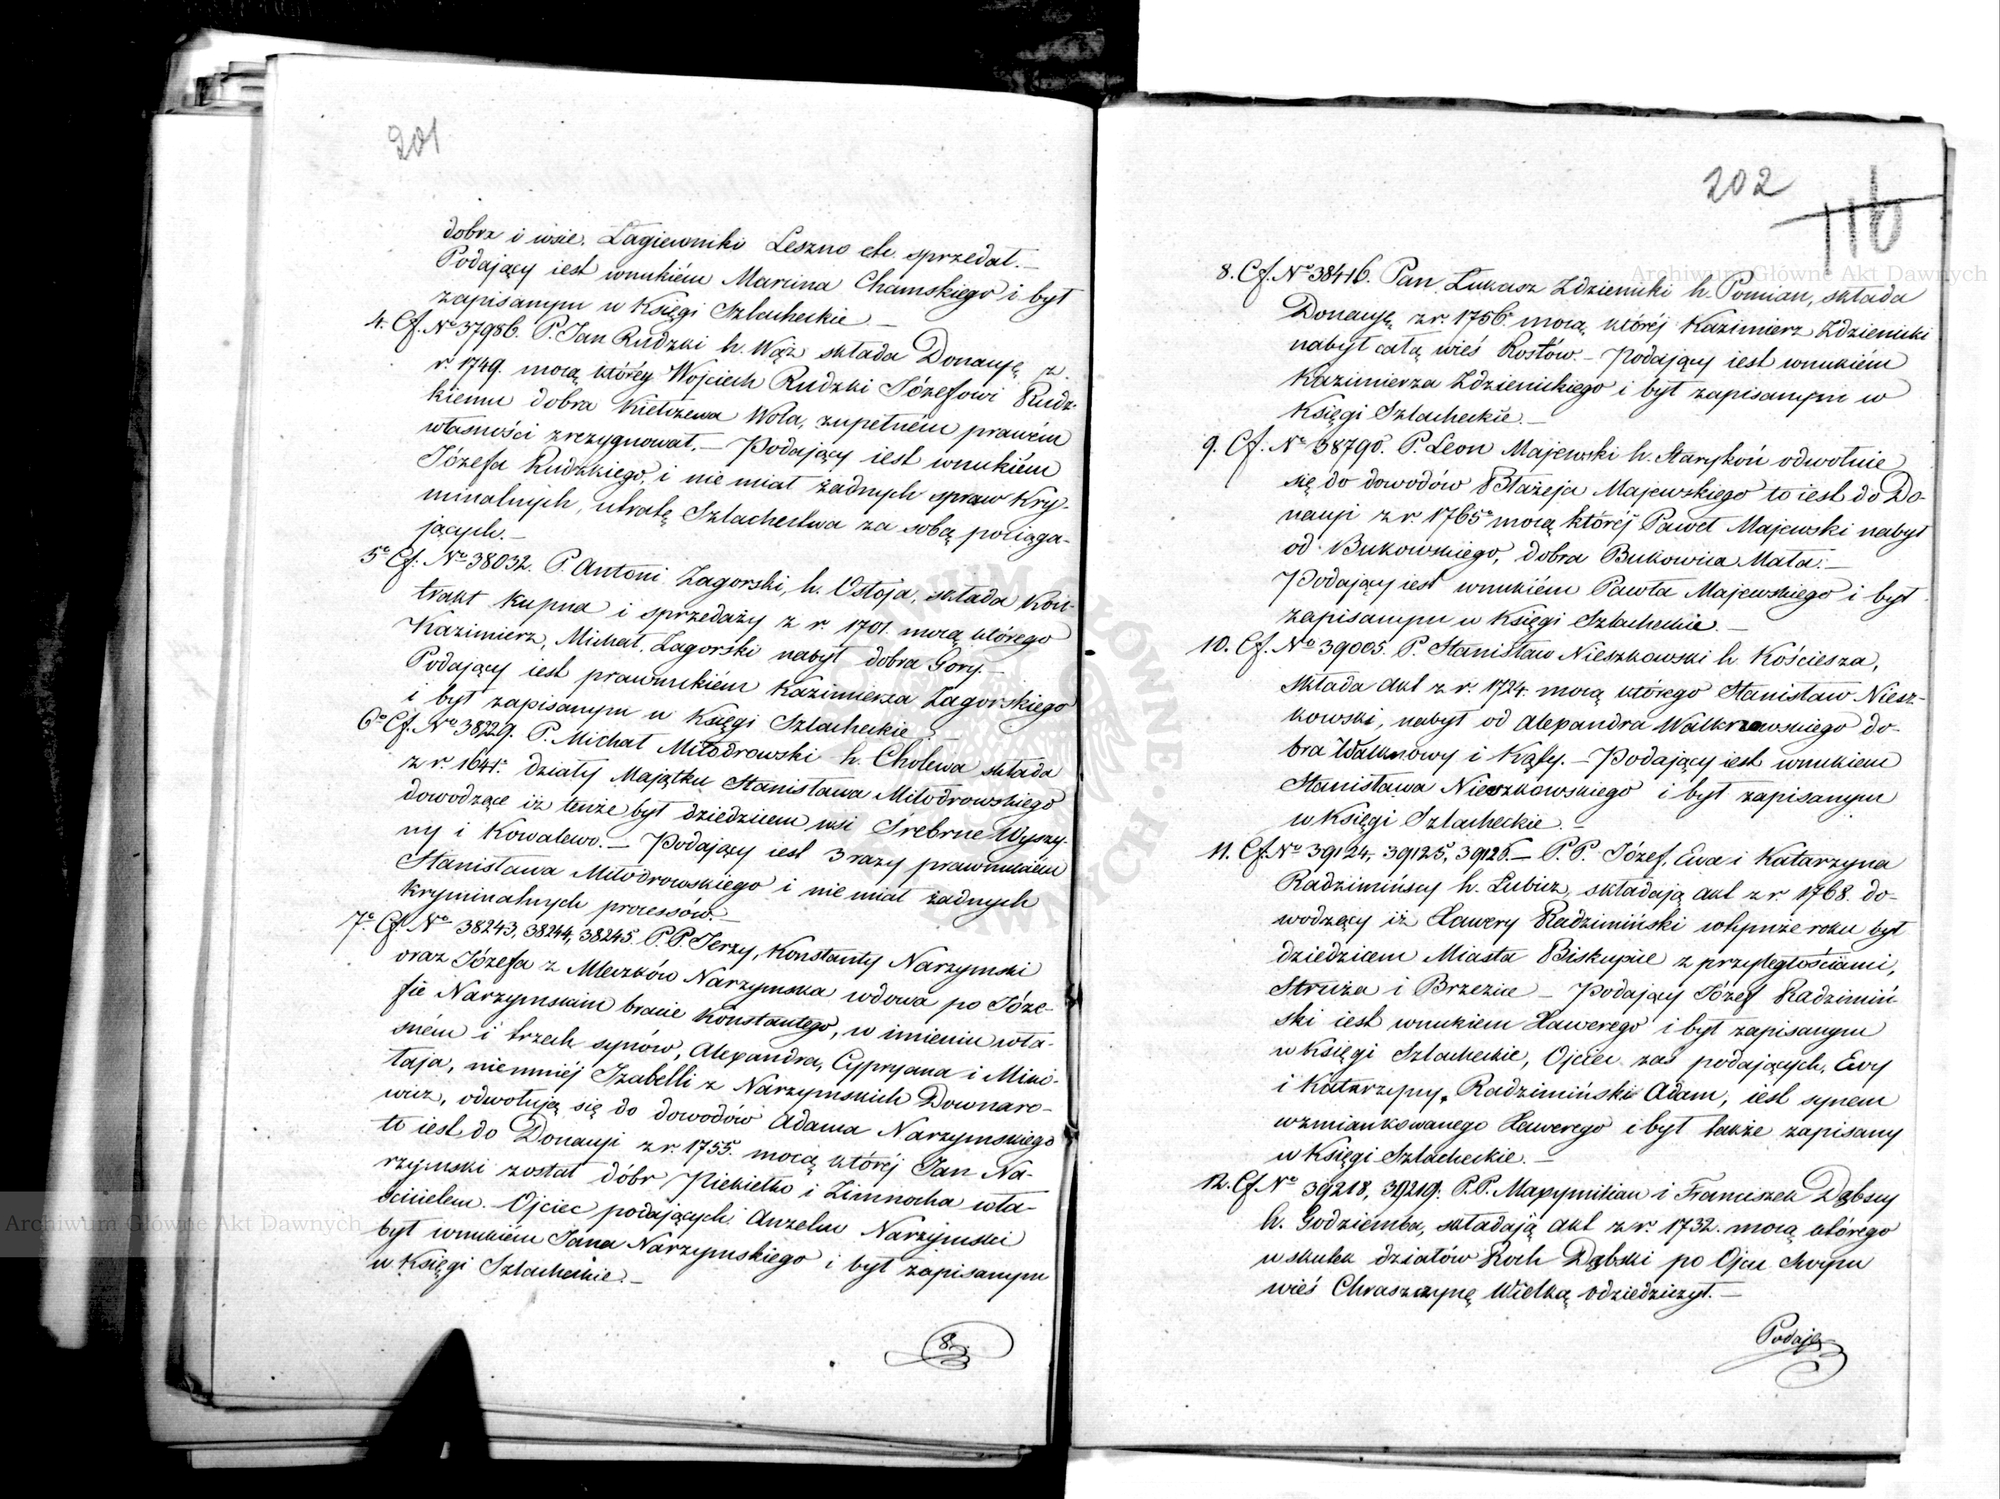 201
dobra i wsie. Łagiewniki Leszno etc. sprzedał.—
Podający iest wnukiém Marcina Chamskiego i był
zapisanym w Księgi Szlacheckie —
4. Cf. No 37986. P. Jan Rudzki h. Wąż składa Donacyę z
r. 1749. mocą którey Wojciech Rudzki Józefowi Rudz-
kiemu dobra Kiełczewa Wola, zupełném prawém
własności zrezygnował.— Podający iest wnukiém
Józefa Rudzkiego, i nie miał żadnych spraw Kry-
minalnych, utratę Szlachectwa za sobą pociąga-
jących.—
5o Cf. No 38032. P. Antoni Zagorski, h. Ostoja, składa Kon-
trakt kupna i sprzedaży z r. 1701. mocą którego
Kazimierz, Michał, Zagorski nabył dobra Gory.—
Podający iest prawnukiem Kazimierza Zagorskiego
i był zapisanym w Księgi Szlacheckie.
6o Cf. No 38229. P. Michał Miłodrowski h. Cholewa składa
z r. 1641. działy Majątku Stanisława Miłodrowskiego
dowodzące iż tenże był dziedzicem wsi Srebrne Wyszy-
ny i Kowalewo.— Podający iest 3 razy prawnukiém
Stanisława Miłodrowskiego i nie miał żadnych
Kryminalnych processów.—
7o Cf. No 38243, 38244, 38245. P.P. Jerzy, Konstanty Narzymski
oraz Józefa z Mleczków Narzymska wdowa po Józe-
fie Narzymskim bracie Konstantego, w imieniu wła-
sném i trzech synów, Alexandra, Cypryana i Miko-
łaja, niemniéj Izabelli z Narzymskich Downaro-
wicz, odwołują się do dowodów Adama Narzymskiego
to iest do Donacyi z r. 1755. mocą któréj Jan Na-
rzymski został dóbr Piekiełko i Zimnocha wła-
scicielem. Ojciec podających Anzelm Narzymski
był wnukiém Jana Narzymskiego i był zapisanym
w Księgi Szlacheckie.—
8.
202
116
8. Cf. No 38416. Pan Łukasz Zdzienicki h. Pomian, składa
Donacyę z r. 1756. mocą któréj Kazimierz Zdzienicki
nabył całą wieś Rostów.— Podający iest wnukiém
Kazimierza Zdzienickiego i był zapisanym w
Księgi Szlacheckie.—
9. Cf. No 38790. P. Leon Majewski h. Starykoń odwołuie
się do dowodów Błażeja Majewskiego to iest do Do-
nacyi z r. 1765o mocą któréj Paweł Majewski nabył
od Bukowskiego, dobra Bukowica Mała.—
Podający iest wnukiém Pawła Majewskiego i był
zapisanym w Księgi Szlacheckie.—
10. Cf. No 39005. P. Stanisław Nieszkowski h. Kościesza,
składa akt z r. 1724. mocą którego Stanisław Niesz-
kowski, nabył od Alexandra Walknowskiego do-
bra Walknowy i Kąty.— Podający iest wnukiem
Stanisława Nieszkowskiego i był zapisanym
w Księgi Szlacheckie.—
11. Cf. No 39124, 39125, 39126.— P.P. Józef, Ewa i Katarzyna
Radzimińscy h. Lubicz, składają akt z r. 1768. do-
wodzący iż Xawery Radzimiński w tymże roku był
dziedzicem Miasta Biskupie z przyległościami,
Struża i Brzezice — Podający Józef Radzimiń-
ski iest wnukiem Xawerego i był zapisanym
w Księgi Szlacheckie, Ojciec zaś podających, Ewy
i Katarzyny, Radzimiński Adam, iest synem
wzmiankowanego Xawerego i był także zapisany
w Księgi Szlacheckie.—
12. Cf. No 39218, 39219. P.P. Maxymilian i Franciszek Dąbscy
h. Godziemba, składają akt z r. 1732. mocą którego
w skutek działów Roch Dąbski po Ojcu swym
wieś Chraszczynę Wielką odziedziczył.—
Podają
Archiwum Główne Akt Dawnych
Archiwum Główne Akt Dawnych